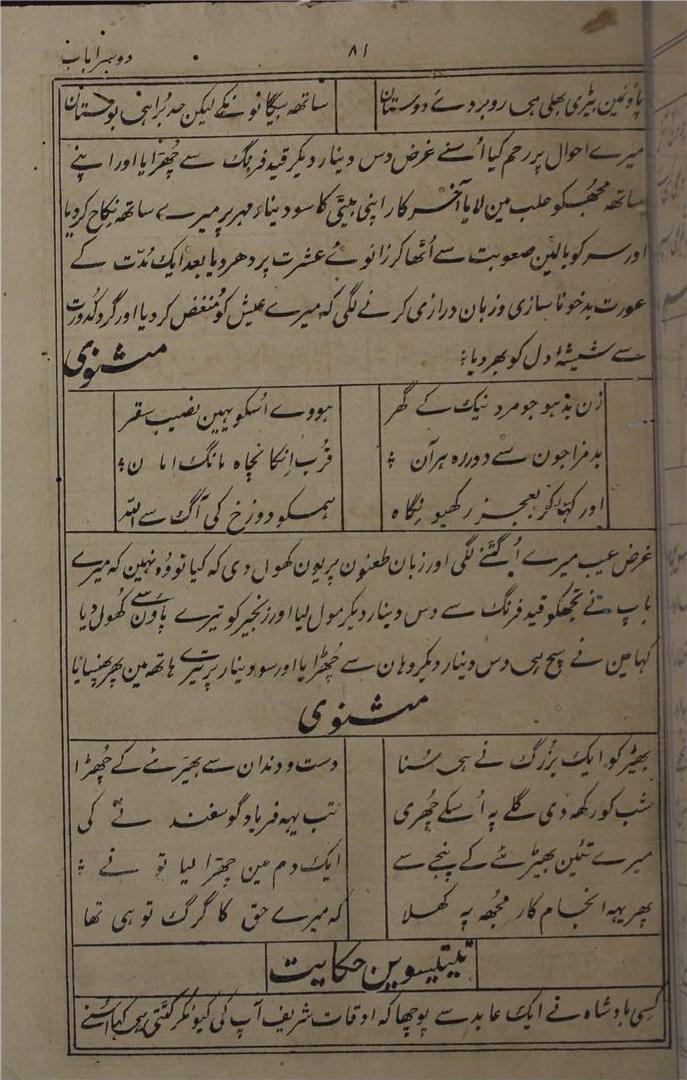 ۸۱
دوسرا باب
پاؤنمین بیڑی بھلی ہی روبروے دوستان
ساتھ بیگانونکے لیکن حد بُرا ہی بوستان
میرے احوال پر رحم کیا اُسنے غرض دس دینار دیکر قید فرنگ سے چُھڑایا اور اپنے
ساتھ مجھکو حلب مین لایا آخر کار اپنی بیٹی کا سو دینار مہر پر میرے ساتھ نکاح کر دیا
اور سر کو بالین صعوبت سے اُٹھا کر زانوئے عشرت پر دھر دیا بعد ایک مُدّت کے
عورت بدخو ناسازی و زبان درازی کرنے لگی کہ میرے عیش کو مُنغض کر دیا اور گرد کُدورت
سے شیشۂ دل کو بھر دیا ؛
مثنوی
زن بد ہو جو مرد نیک کے گھر
ہووے اُسکو یہین نصیب سقر
بدمزاجون سے دور رہ ہر آن ؛
قُرب اِنکا نچاہ مانگ امان ؛
اور کہا کر بعجز رکھیو نگاہ
ہمسکو دوزخ کی آگ سے اللہ
غرض عیب میرے اُگٹنے لگی اور زبان طعنون پر یون کھول دی کہ کیا تو وُہ نہین کہ میرے
باپ نے تجھکو قید فرنگ سے دس دینار دیکر مول لیا اور زنجیر کو تیرے پاؤن سے کُھول دیا
کہا مین نے سچ ہی دس دینار دیکر وہان سے چُھڑایا اور سو دینار پر تیرے ہاتھ مین پھر پھنسایا
مثنوی
بھیڑ کو ایک بزرگ نے ہی سُنا
دست و دندان سے بھیڑئے کے چھڑا
شب کو رکھ دی گلے پہ اُسکے چُھری
تب یہہ فریاد گوسفند نے کی
میرے تئین بھیڑئے کے پنجے سے
ایک دم مین چھڑا لیا تو نے ؛
پھر یہہ انجام کار مجھہ پہ کھلا
کہ میرے حق کا گرگ تو ہی تھا
تیتیسوین حکایت
کسی بادشاہ نے ایک عابد سے پوچھا کہ اوقات شریف آپ کی کیونکر کٹتی ہی کہا اُسنے